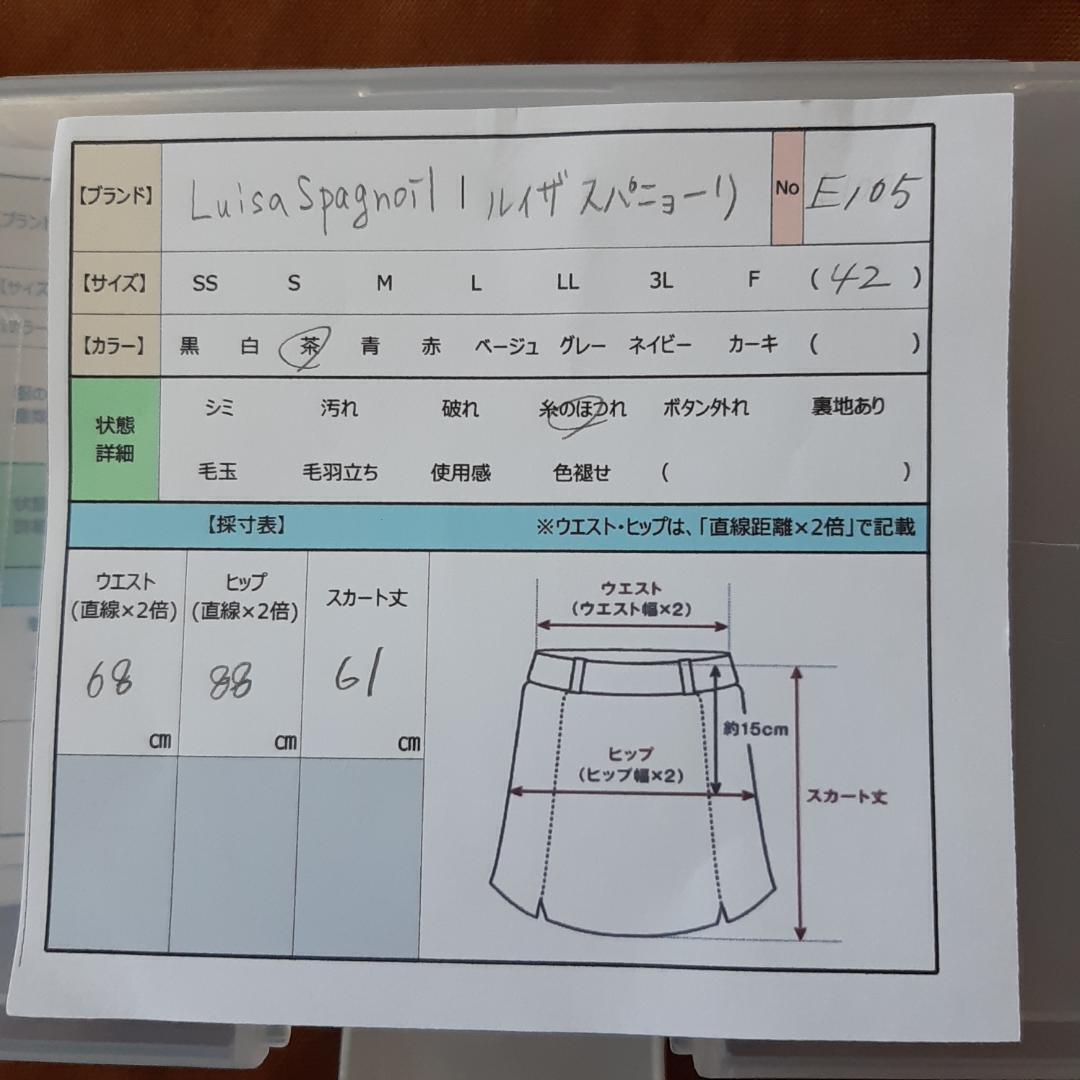 【ブランド】 Luisa Spagnoil | ルイザ スパニョーリ No E105
【サイズ】 SS S M L LL 3L F ( 42 )
【カラー】 黒 白 茶 青 赤 ベージュ グレー ネイビー カーキ ( )
状態
詳細
シミ 汚れ 破れ 糸のほつれ ボタン外れ 裏地あり
毛玉 毛羽立ち 使用感 色褪せ ( )
【採寸表】 ※ウエスト・ヒップは、「直線距離×2倍」で記載
ウエスト
(直線×2倍)
68
cm
ヒップ
(直線×2倍)
88
cm
スカート丈
61
cm
ウエスト
(ウエスト幅×2)
約15cm
ヒップ
(ヒップ幅×2)
スカート丈